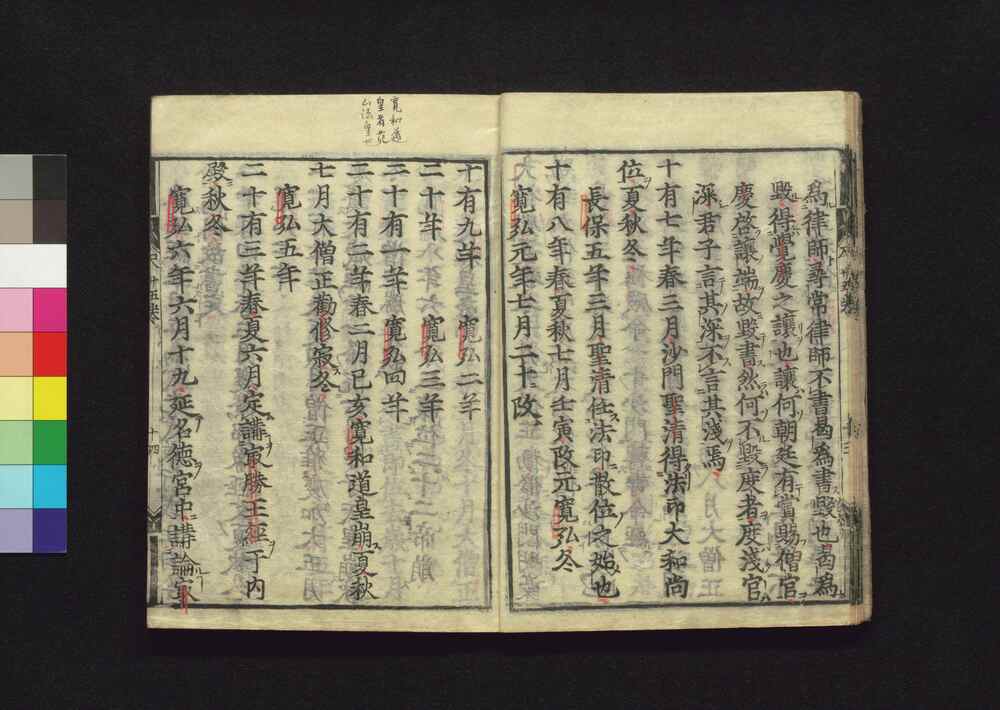 爲律師尋常律師不書曷爲書毀也曷爲
毀得覺慶之讓也讓何朝廷有賞賜僧官
慶啓讓端故毀書然何不毀慶者慶淺官
深君子言其深不言其淺焉
十有七年春三月沙門聖清得法印大和尚
位夏秋冬
長保五年三月聖清任法印散位之始也
十有八年春夏秋七月壬寅改元寬弘冬
寬弘元年七月二十改
寬和道
皇者花
山法皇也
十有九年 寬弘二年
二十年 寬弘三年
二十有一年 寬弘四年
二十有二年春二月己亥寬和道皇崩夏秋
七月大僧正勸修寂冬
寬弘五年
二十有三年春夏六月定講最勝王經于内
殿秋冬
寬弘六年六月十九延名德宮中講論
十四